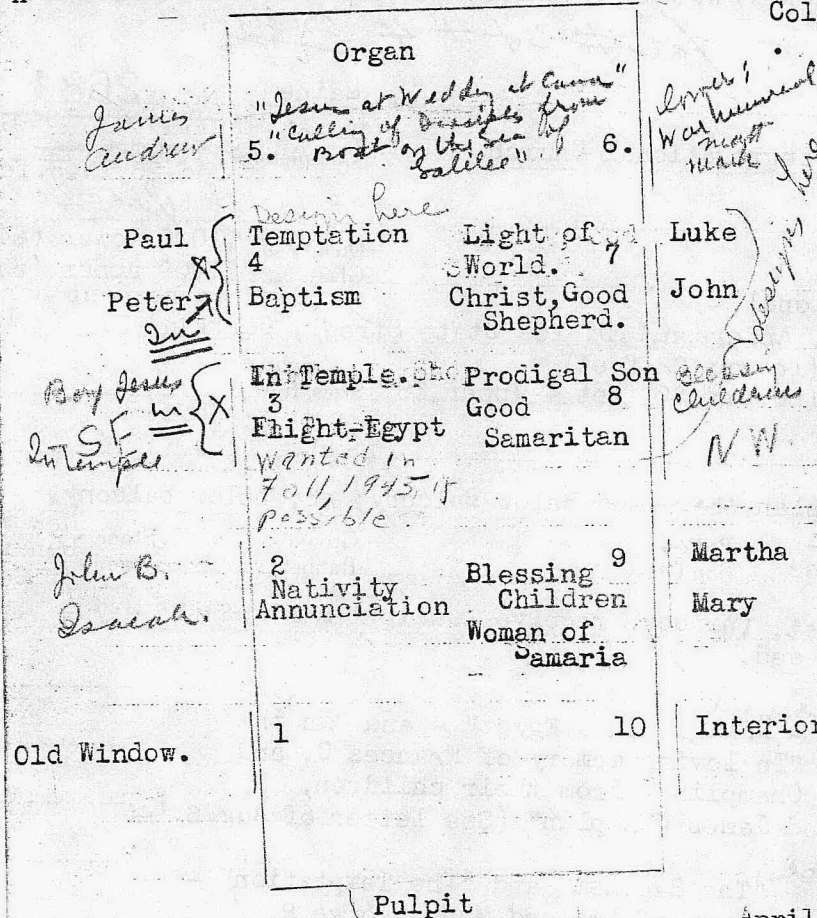 Col
Organ
James
Andrew
"Jesus at Wedding at Cana"
"Calling of Disciples from
Boat on the Sea of
Galilee"
5.
6.
lower:
War memorial
Design here
Paul
Peter
X
In
Temptation
4
Baptism
Light of
World.
7
Christ, Good
Shepherd.
Luke
John
designs here
Boy Jesus
In Temple
SE
in
X
In Temple.
3
Flight-Egypt
Wanted in
Fall, 1945, if
possible
Prodigal Son
Good
8
Samaritan
Blessing
Childrens
NW
John B.
Isaiah.
2
Nativity
Annunciation
Blessing
9
Children
Woman of
Samaria
Martha
Mary
Old Window.
1
10
Interior
Pulpit
April